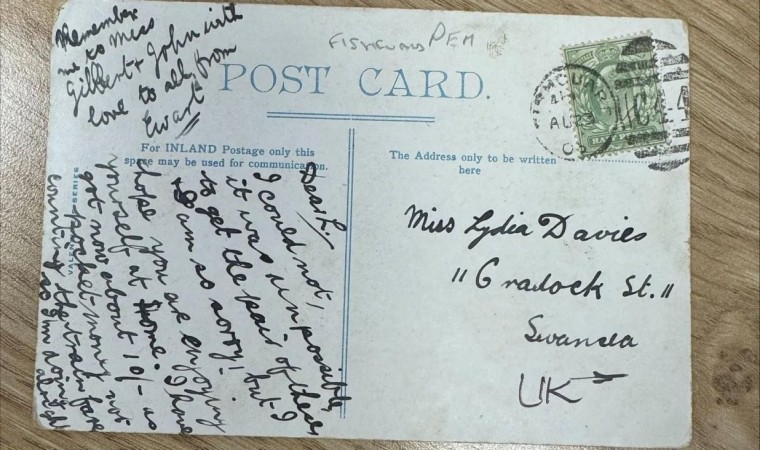 Remember
me to Miss
Gilbert & John with
love to all, from
Ewart
FISHGUARD PEM
POST CARD.
For INLAND Postage only this
space may be used for communication.
The Address only to be written
here
Dear L,
I could not,
it was unpossible,
to get the pair of these
& I am so sorry! but I
hope you are enjoying
yourself at Home. I have
got now about 10/- as
pocket-money not
counting the train fare
so I'm doing
alright
SERIES
AU 23
Miss Lydia Davies
11 Cradock St.
Swansea
UK